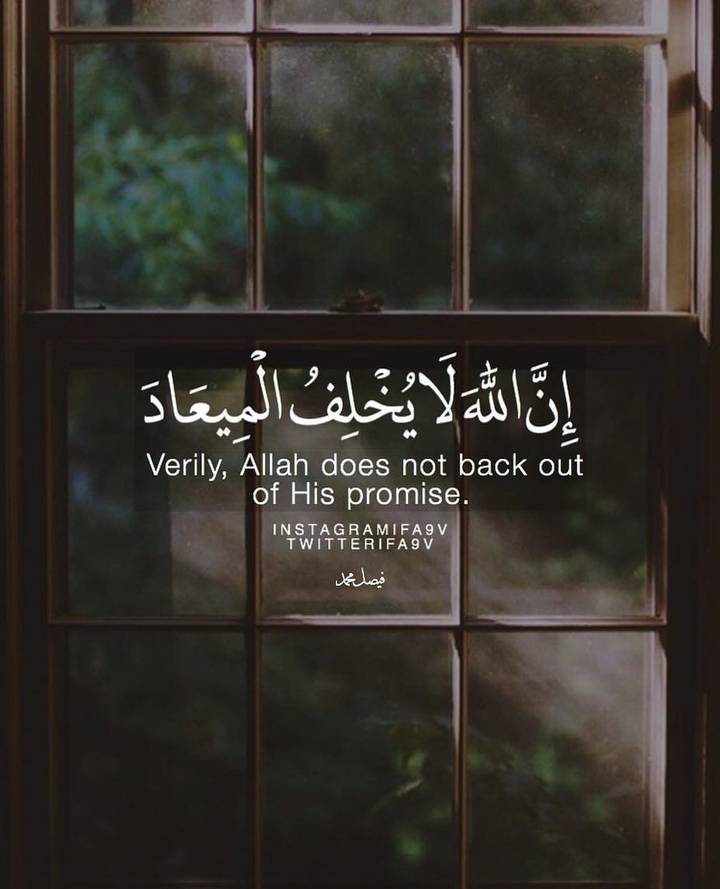 إِنَّ اللَّهَ لَا يُخْلِفُ الْمِيعَادَ
Verily, Allah does not back out
of His promise.
INSTAGRAMIFA9V
TWITTERIFA9V
فيصل محمد